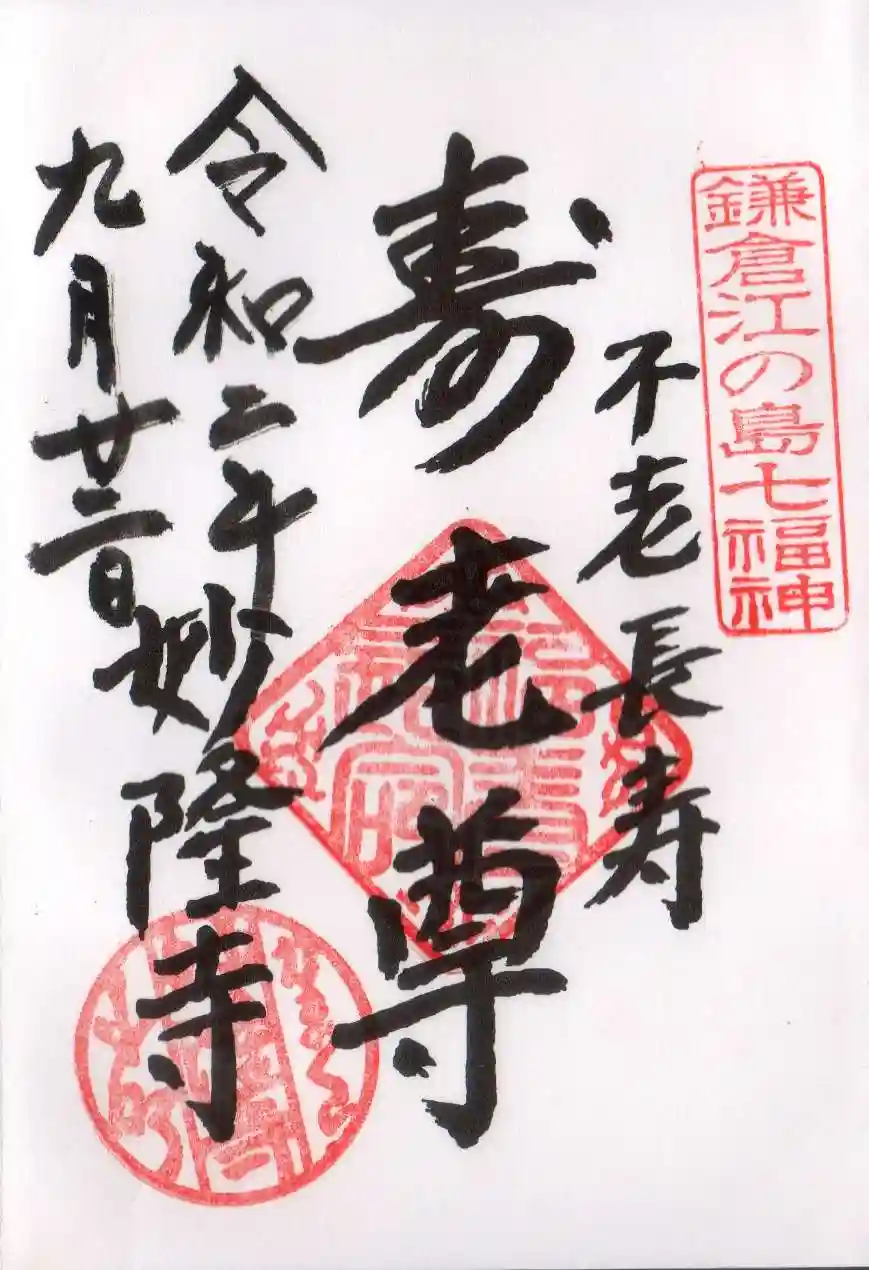 鎌倉江の島七福神
不老長寿
寿老尊
令和二年
九月廿二日
妙隆寺